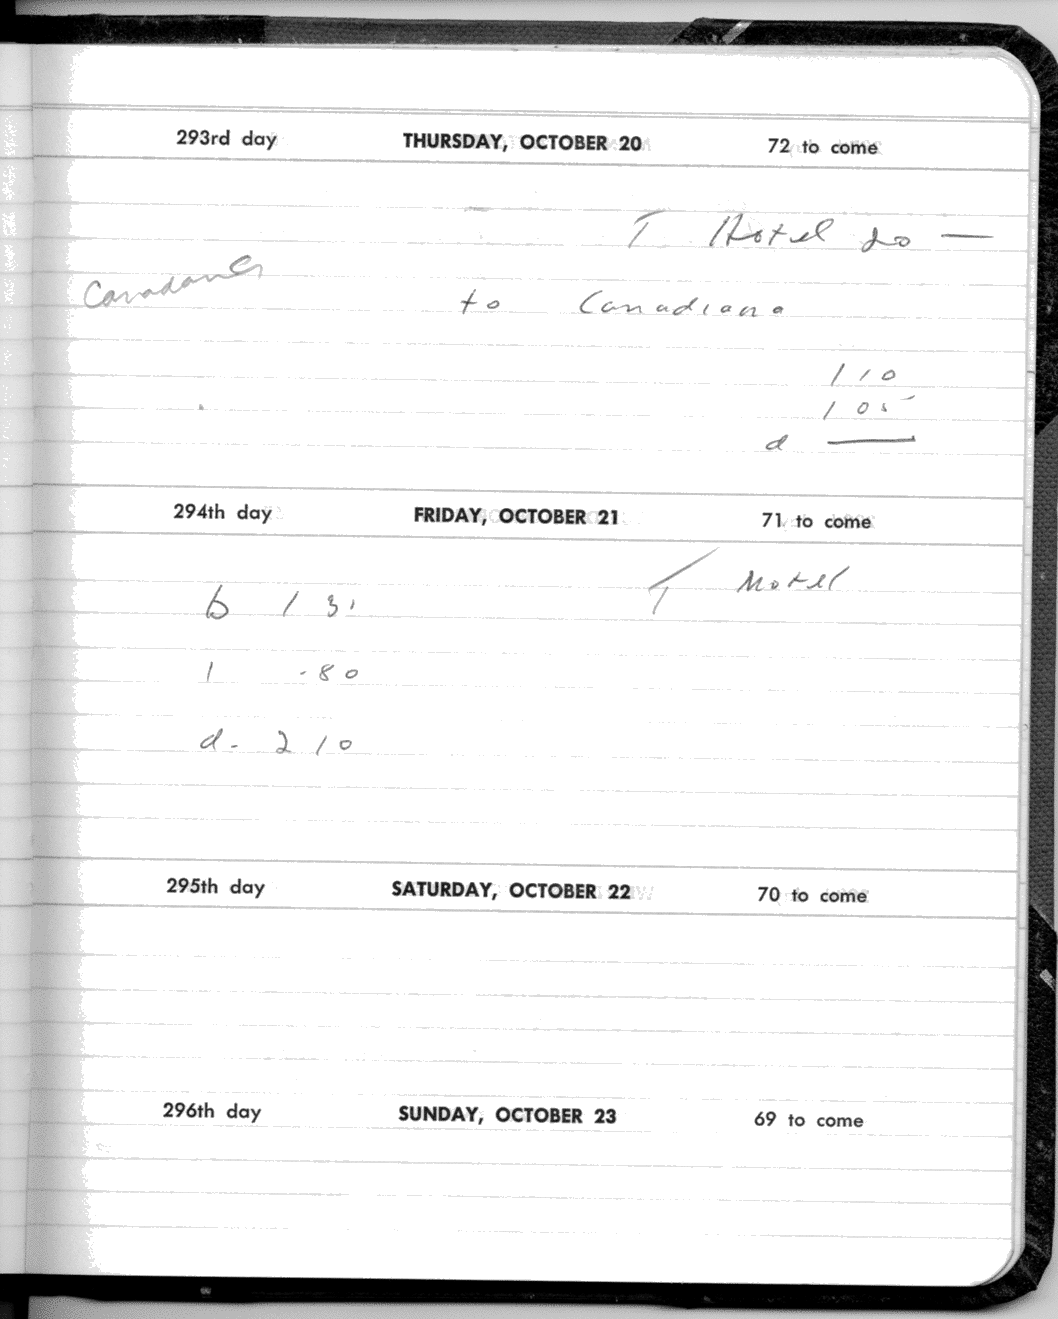 293rd day THURSDAY, OCTOBER 20 72 to come
T Hotel 20 —
to Canadiana
110
105
d —
294th day FRIDAY, OCTOBER 21 71 to come
T Motel
b 1 3
1 .80
d. 2 10
295th day SATURDAY, OCTOBER 22 70 to come
296th day SUNDAY, OCTOBER 23 69 to come